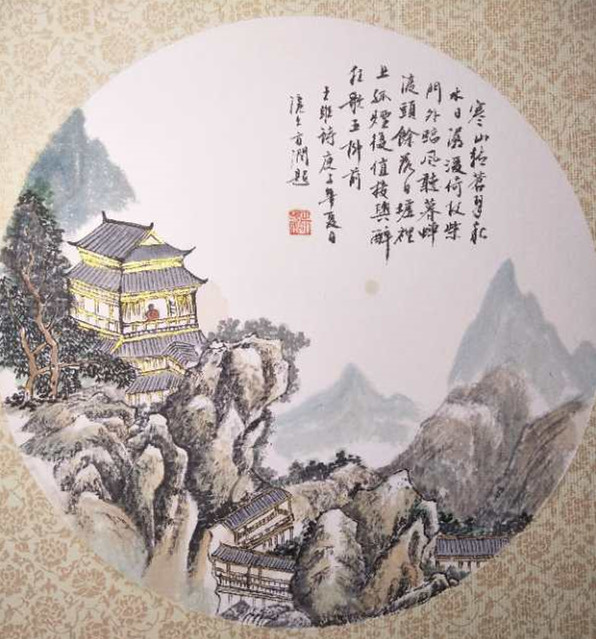 寒山轉蒼翠秋
水日潺湲倚杖柴
門外臨風聽暮蟬
渡頭餘落日墟裡
上孤煙復值接輿醉
狂歌五柳前
王維詩庚子年夏日
滬上方潤題